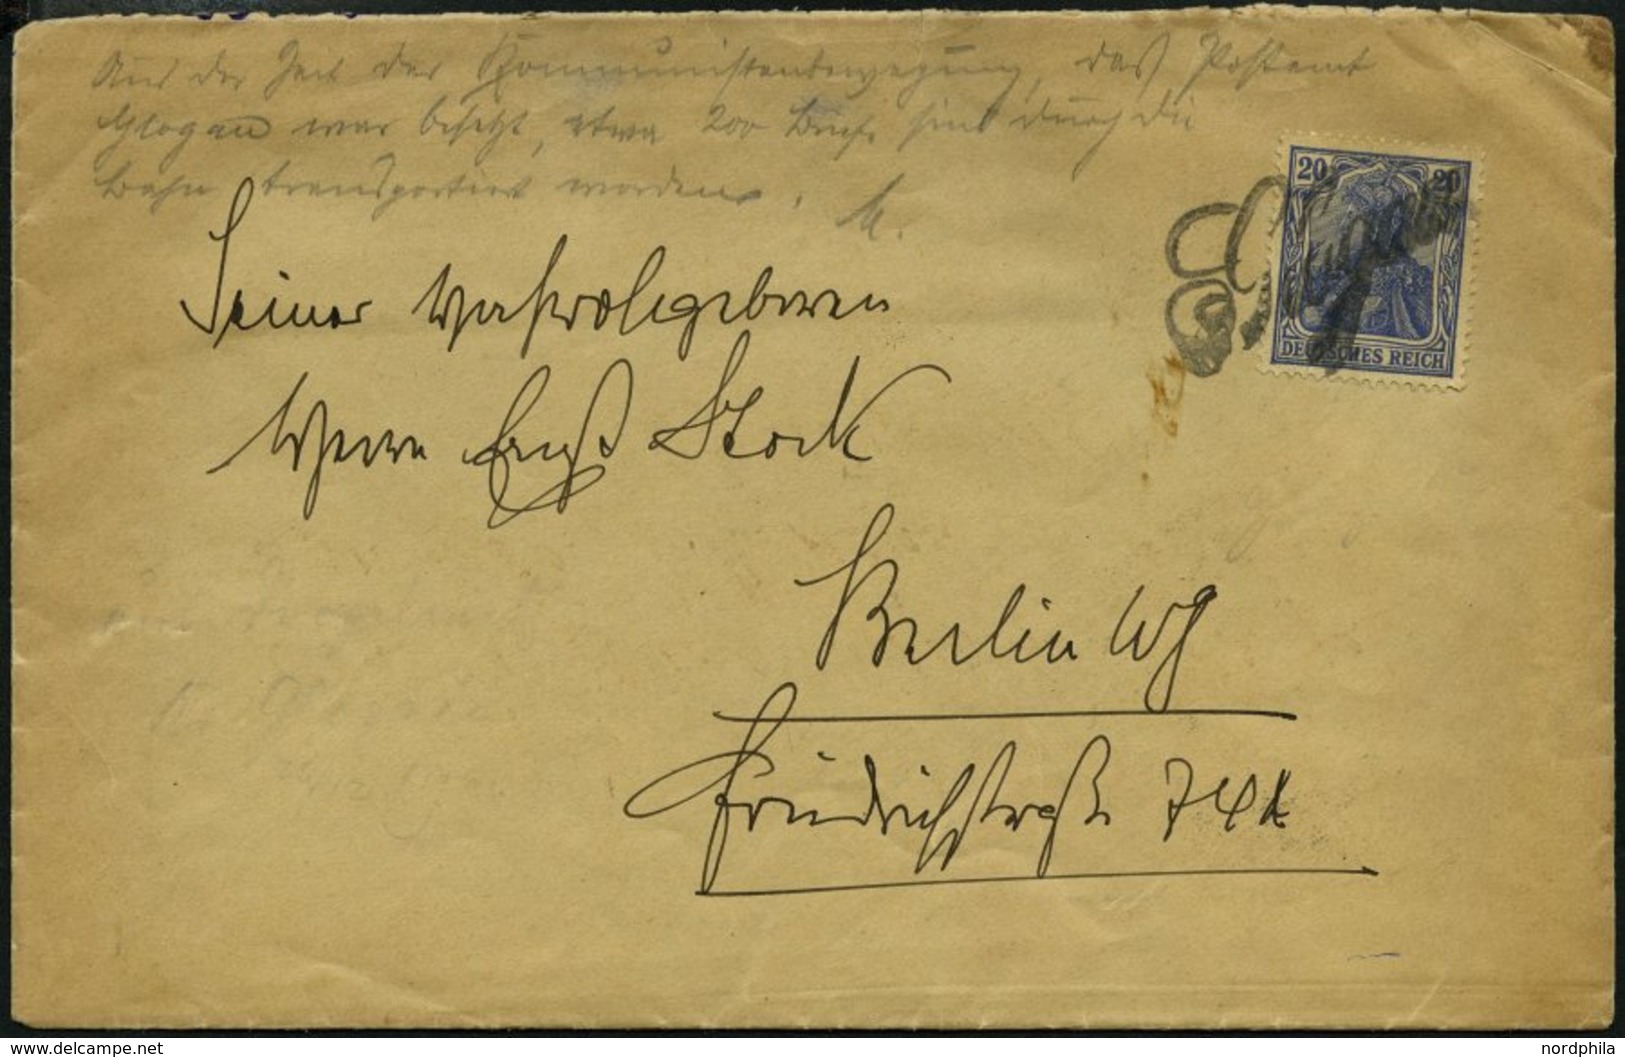 Aus der Zeit der Kommunistenbewegung, das Postamt
Glogau war besetzt, etwa 200 Briefe sind durch die
Bahn transportiert worden.
20 20
DEUTSCHES REICH
Seiner Hochwohlgeboren
Herrn Ernst Stock
Berlin W 8
Friedrichstraße 74
nordphila.com